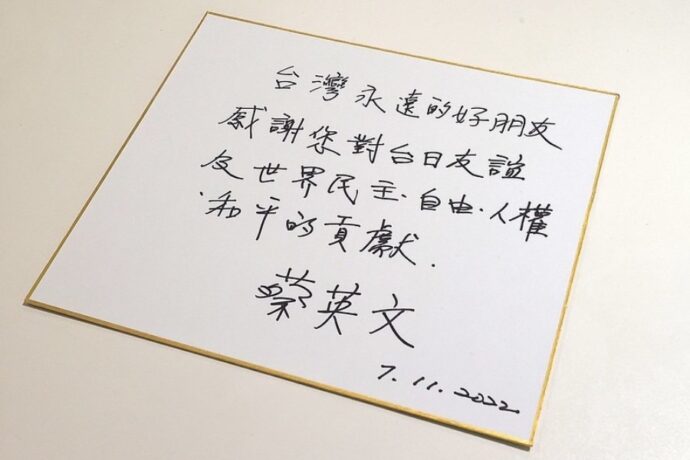 台灣永遠的好朋友
感謝您對台日友誼
及世界民主．自由．人權
．和平的貢獻．
蔡英文
7.11.2022